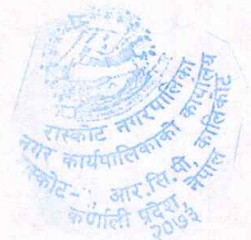 रास्कोट नगरपालिका
नगर कार्यपालिकाको कार्यालय
रास्कोट- आर.सि.पी. कालिकोट
कर्णाली प्रदेश, नेपाल
२०७३